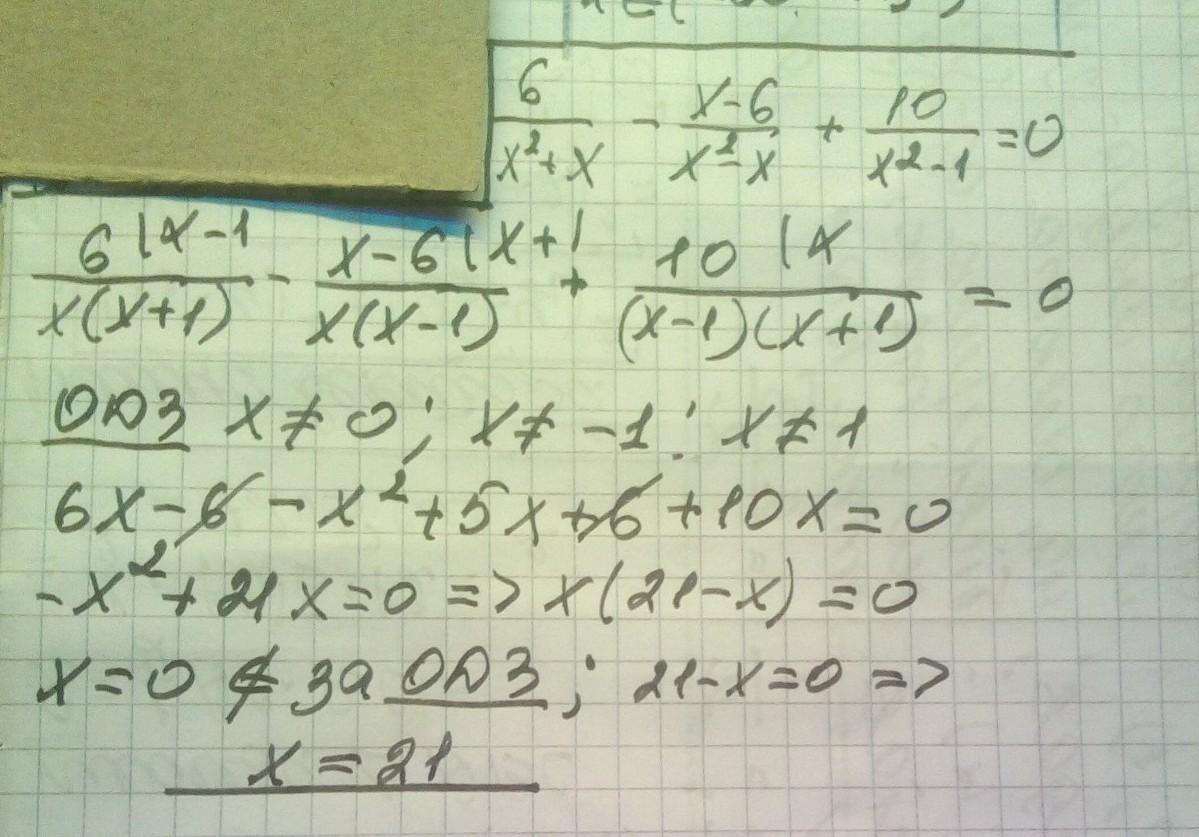 6/(x²+x) - (x-6)/(x²-x) + 10/(x²-1) = 0
6 \x-1/(x(x+1)) - x-6 \x+1/(x(x-1)) + 10 \x/((x-1)(x+1)) = 0
ОДЗ x ≠ 0; x ≠ -1; x ≠ 1
6x - 6 - x² + 5x + 6 + 10x = 0
-x² + 21x = 0 => x(21-x) = 0
x = 0 ∉ за ОДЗ; 21-x = 0 =>
x = 21